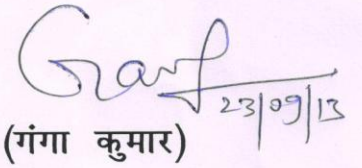 23/09/13
(गंगा कुमार)